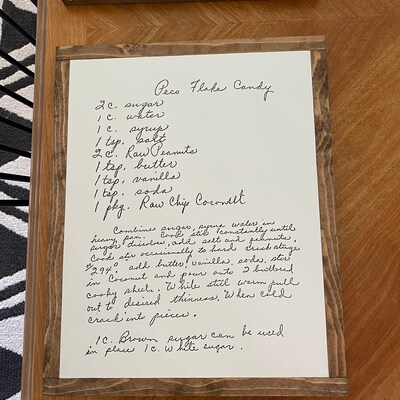 Peco Flake Candy
2 c. sugar
1 c. water
1 c. syrup
1 tsp. salt
2 c. Raw Peanuts
1 tsp. butter
1 tsp. vanilla
1 tsp. soda
1 pkg. Raw Chip Coconut
Combine sugar, syrup water in
heavy pan. Cook stir constantly until
sugar disolves, add salt and peanuts.
Cook stir occasionally to hard crack stage
294° add butter, vanilla, soda, stir
in Coconut and pour onto 2 buttered
cooky sheets. While still warm pull
out to desired thinness. When cold
crack into pieces.
1 C. Brown sugar can be used
in place 1 C. White sugar.